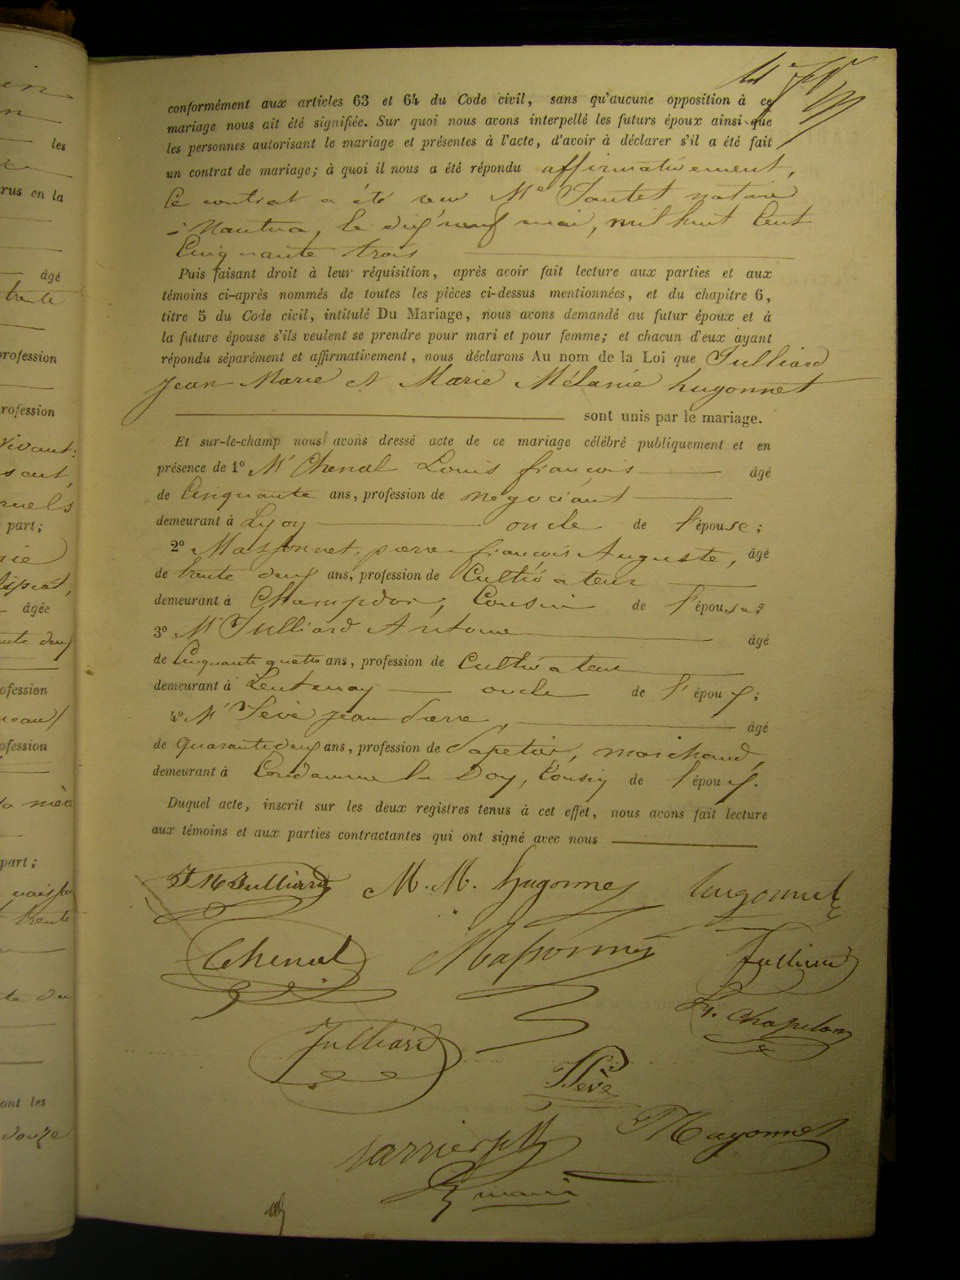 conformément aux articles 63 et 64 du Code civil, sans qu'aucune opposition à ce
mariage nous ait été signifiée. Sur quoi nous avons interpellé les futurs époux ainsi que
les personnes autorisant le mariage et présentes à l'acte, d'avoir à déclarer s'il a été fait
un contrat de mariage; à quoi il nous a été répondu affirmativement,
le contrat a été reçu Me notaire
à Nantua, le dix neuf mai, mil huit Cent
Cinquante trois
Puis faisant droit à leur réquisition, après avoir fait lecture aux parties et aux
témoins ci-après nommés de toutes les pièces ci-dessus mentionnées, et du chapitre 6,
titre 5 du Code civil, intitulé Du Mariage, nous avons demandé au futur époux et à
la future épouse s'ils veulent se prendre pour mari et pour femme; et chacun d'eux ayant
répondu séparément et affirmativement, nous déclarons Au nom de la Loi que Julliard
Jean Marie et Marie Mélanie hugonnet
sont unis par le mariage.
Et sur-le-champ nous avons dressé acte de ce mariage célébré publiquement et en
présence de 1° Mr Chenal Louis françois âgé
de Cinquante ans, profession de négociant
demeurant à Lyon oncle de l'épouse;
2° Massonnet, pierre françois Auguste, âgé
de trente deux ans, profession de Cultivateur
demeurant à Champdor, Cousin de l'épouse;
3° Mr Julliard Antoine âgé
de Cinquante quatre ans, profession de Cultivateur
demeurant à Lentenay oncle de l'époux;
4° Mr Sève jean Pierre, âgé
de quarante deux ans, profession de Papetier, marchand,
demeurant à Condamine la Doy, Cousin de l'époux.
Duquel acte, inscrit sur les deux registres tenus à cet effet, nous avons fait lecture
aux témoins et aux parties contractantes qui ont signé avec nous
J M Julliard M. M. hugonnet hugonnet
Chenal Massonnet Julliard
Chapelon
Julliard
Sève
Mayonnet
maire
les
rus en la
âgé
trente
profession
rofession
vivant
part;
âgée
ofession
ofession
la mère
part;
trente
ont les
douze